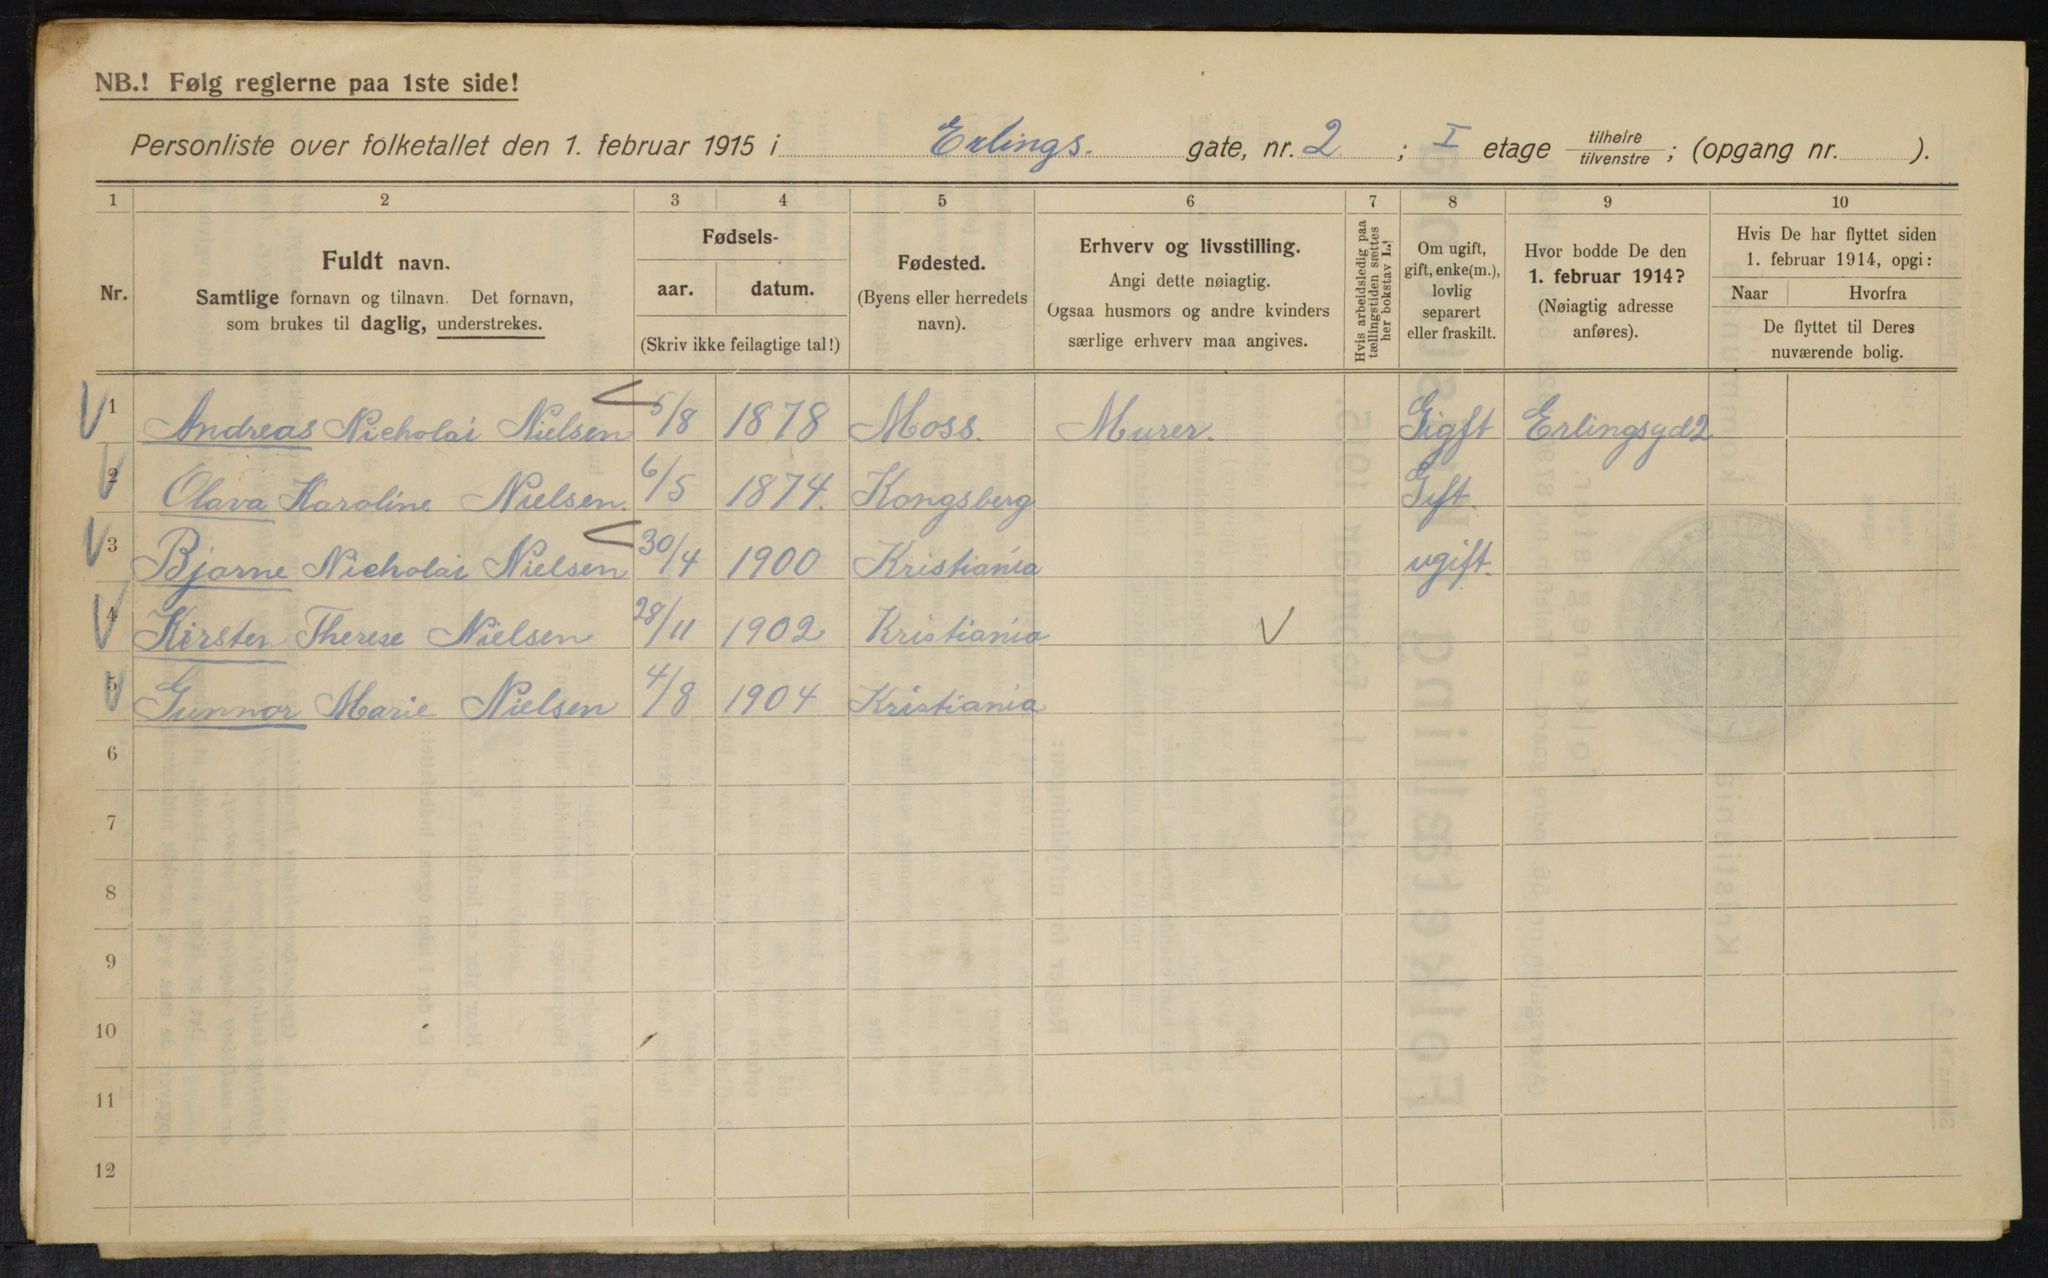 NB.! Følg reglerne paa 1ste side!
Personliste over folketallet den 1. februar 1915 i Erlings. gate, nr. 2 ; I etage tilhøire/tilvenstre ; (opgang nr. ).
1 2 3 4 5 6 7 8 9 10
Nr.
Fuldt navn.
Samtlige fornavn og tilnavn. Det fornavn,
som brukes til daglig, understrekes.
Fødsels-
aar. datum.
(Skriv ikke feilagtige tal!)
Fødested.
(Byens eller herredets
navn).
Erhverv og livsstilling.
Angi dette nøiagtig.
Ogsaa husmors og andre kvinders
særlige erhverv maa angives.
Hvis arbeidsledig paa
tællingstiden sættes
her bokstav L.!
Om ugift,
gift, enke(m.),
lovlig
separert
eller fraskilt.
Hvor bodde De den
1. februar 1914?
(Nøiagtig adresse
anføres).
Hvis De har flyttet siden
1. februar 1914, opgi:
Naar Hvorfra
De flyttet til Deres
nuværende bolig.
1 Andreas Nicholai Nielsen 5/8 1878 Moss. Murer. Gigft Erlingsgd2
2 Olava Karoline Nielsen. 6/5 1874. Kongsberg Gift.
3 Bjarne Nicholai Nielsen 30/4 1900 Kristiania ugift.
4 Kirsten Therese Nielsen 28/11 1902 Kristiania
5 Gunnor Marie Nielsen 4/8 1904 Kristiania
6
7
8
9
10
11
12